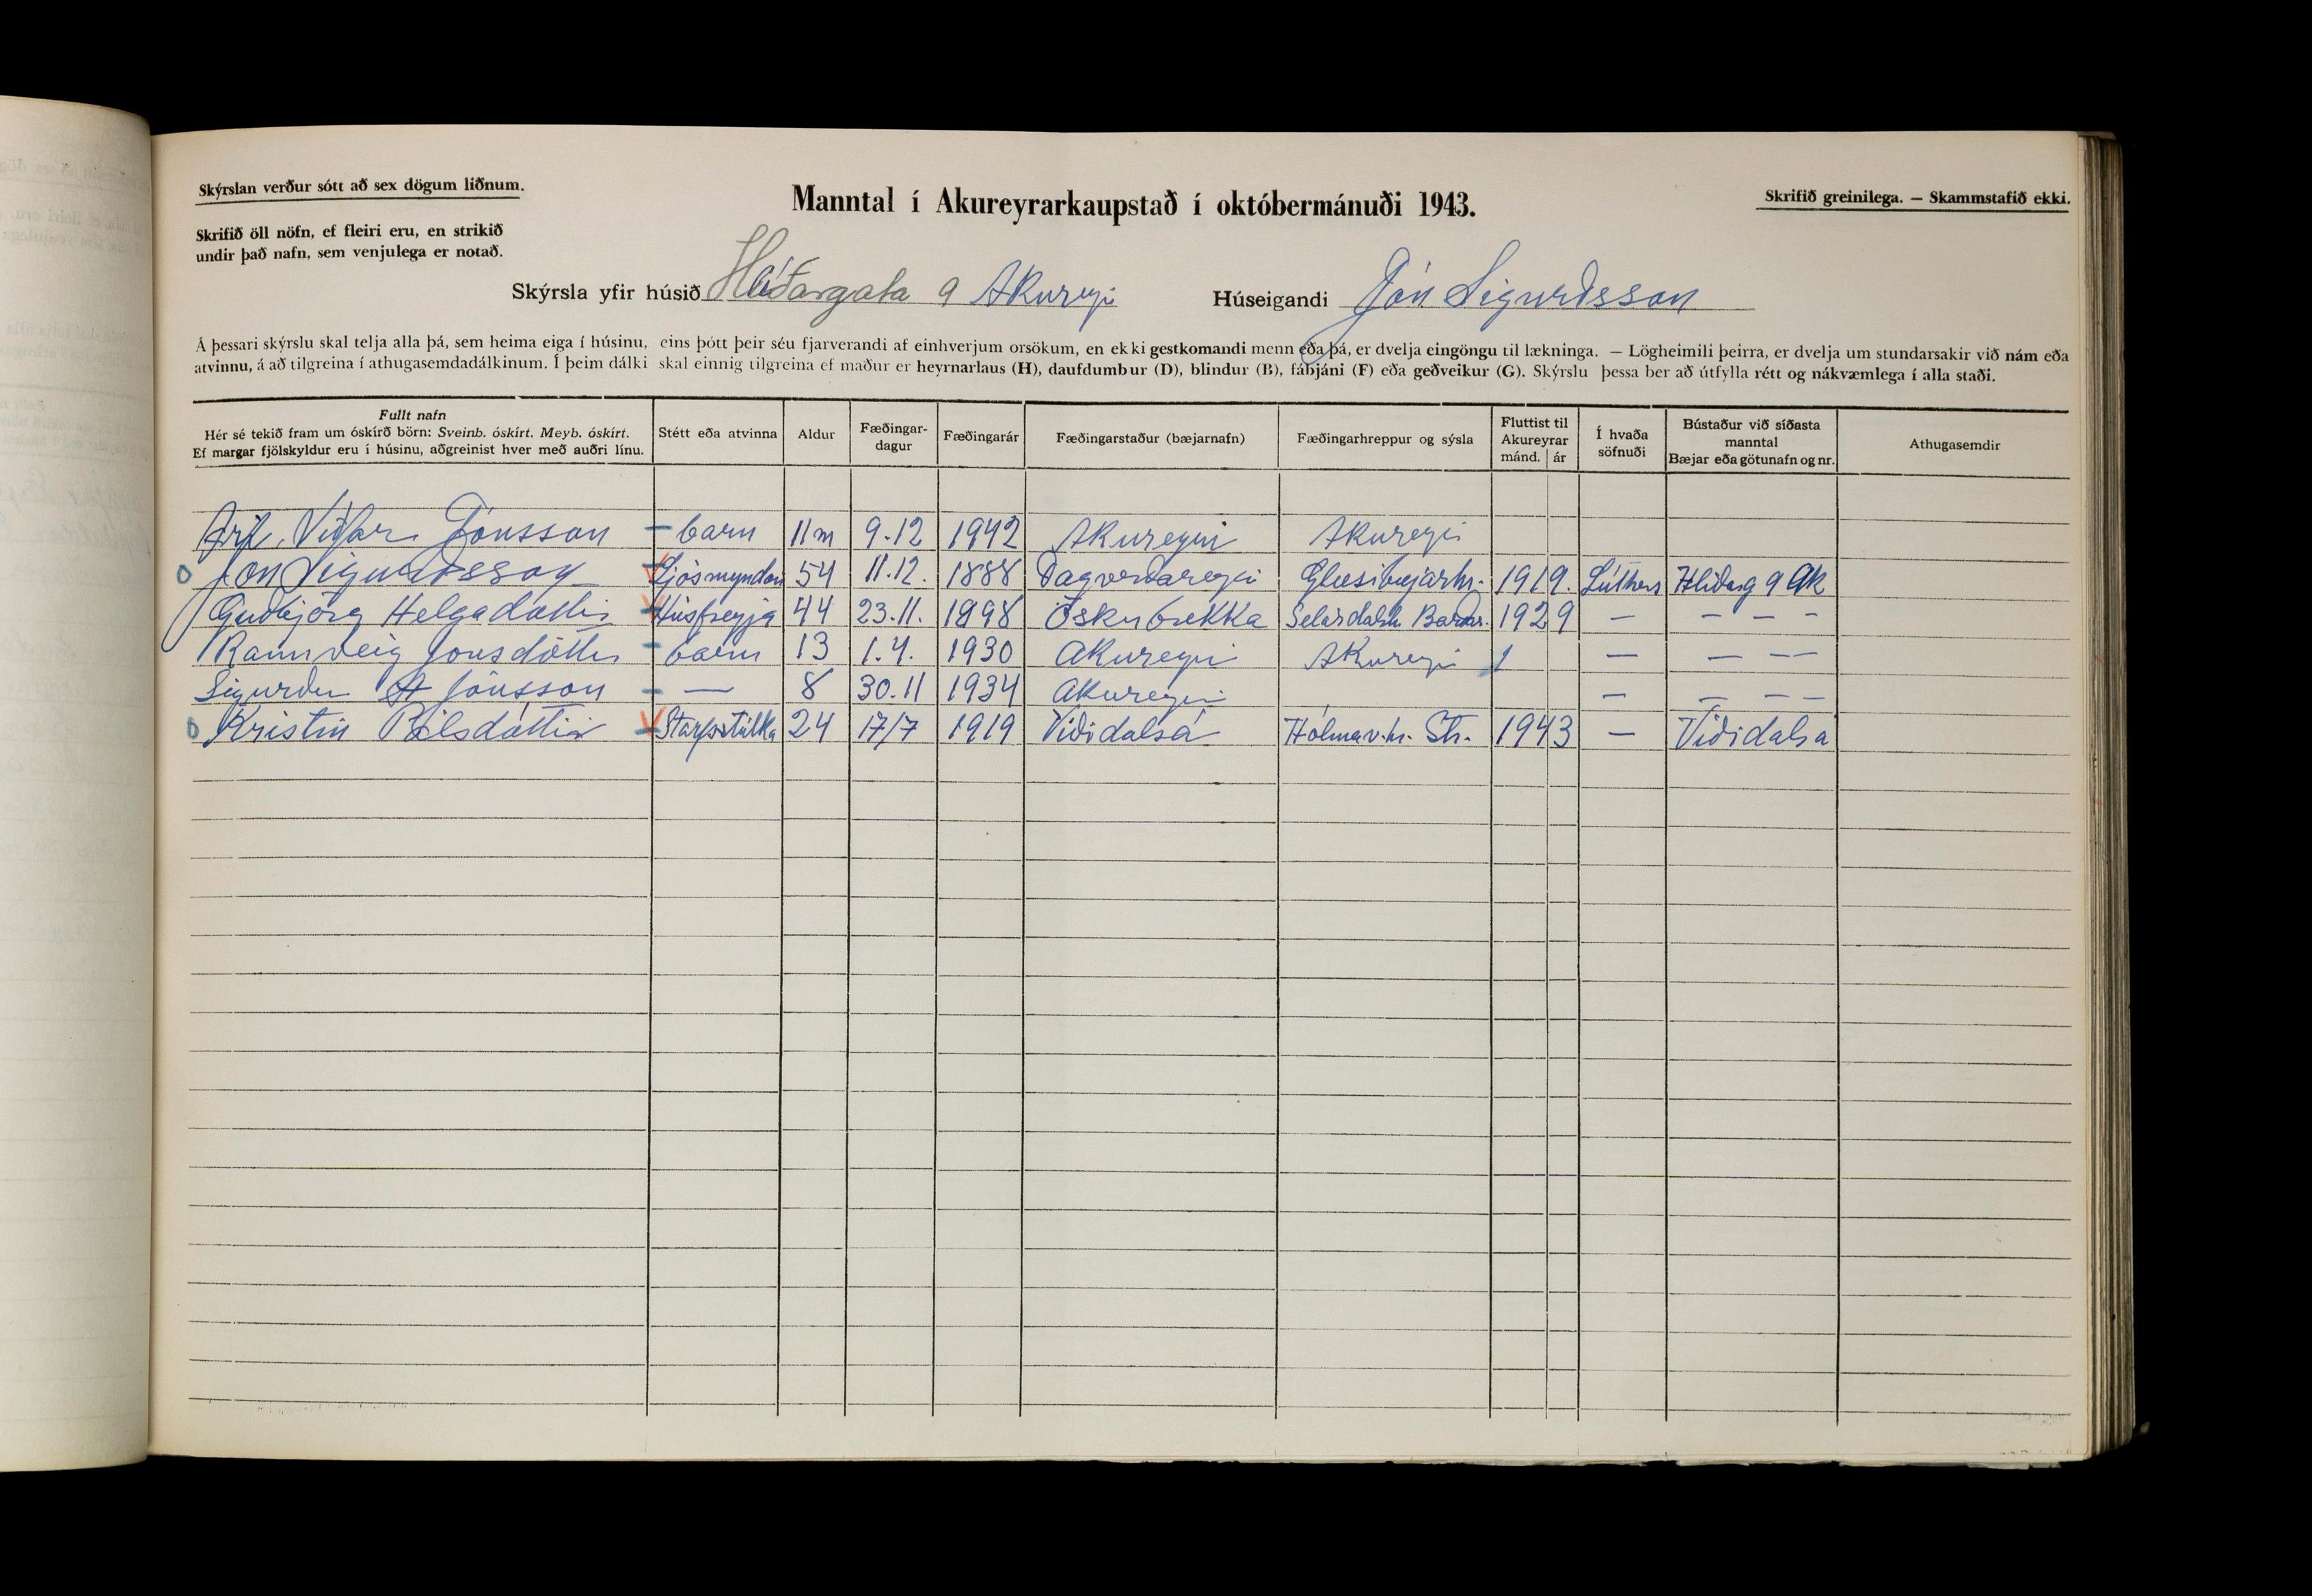 Skýrslan verður sótt að sex dögum liðnum.
Manntal í Akureyrarkaupstað í októbermánuði 1943.
Skrifið greinilega. — Skammstafið ekki.
Skrifið öll nöfn, ef fleiri eru, en strikið
undir það nafn, sem venjulega er notað.
Skýrsla yfir húsið Hlíðargata 9 Akureyri Húseigandi Jón Sigurðsson
Á þessari skýrslu skal telja alla þá, sem heima eiga í húsinu, eins þótt þeir séu fjarverandi af einhverjum orsökum, en ekki gestkomandi menn eða þá, er dvelja eingöngu til lækninga. — Lögheimili þeirra, er dvelja um stundarsakir við nám eða
atvinnu, á að tilgreina í athugasemdadálkinum. Í þeim dálki skal einnig tilgreina ef maður er heyrnarlaus (H), daufdumbur (D), blindur (B), fábjáni (F) eða geðveikur (G). Skýrslu þessa ber að útfylla rétt og nákvæmlega í alla staði.
Fullt nafn
Hér sé tekið fram um óskírð börn: Sveinb. óskírt. Meyb. óskírt.
Ef margar fjölskyldur eru í húsinu, aðgreinist hver með auðri línu.
Stétt eða atvinna
Aldur
Fæðingar-
dagur
Fæðingarár
Fæðingarstaður (bæjarnafn)
Fæðingarhreppur og sýsla
Fluttist til
Akureyrar
mánd. ár
Í hvaða
söfnuði
Bústaður við síðasta
manntal
Bæjar eða götunafn og nr.
Athugasemdir
Víðar Jónsson – barn 11 m 9.12 1942 Akureyri Akureyri
Jón Sigurðsson Ljósmyndari 54 11.12. 1888 Dagverðareyri Glæsibæjarhr. 1919. Lúthers Hlíðarg 9 Ak
Guðbjörg Helgadóttir Húsfreyja 44 23.11. 1898 Öskubrekka Selárdalsh Barðr. 1929 — — — —
Rannveig Jónsdóttir - barn 13 1.4. 1930 Akureyri Akureyri — — — —
Sigurður A Jónsson – — 8 30.11 1934 Akureyri — — — —
Kristín Pálsdóttir Starfsstúlka 24 17/7 1919 Víðidalsá Hólmav.hr. Str. 1943 — Víðidalsá